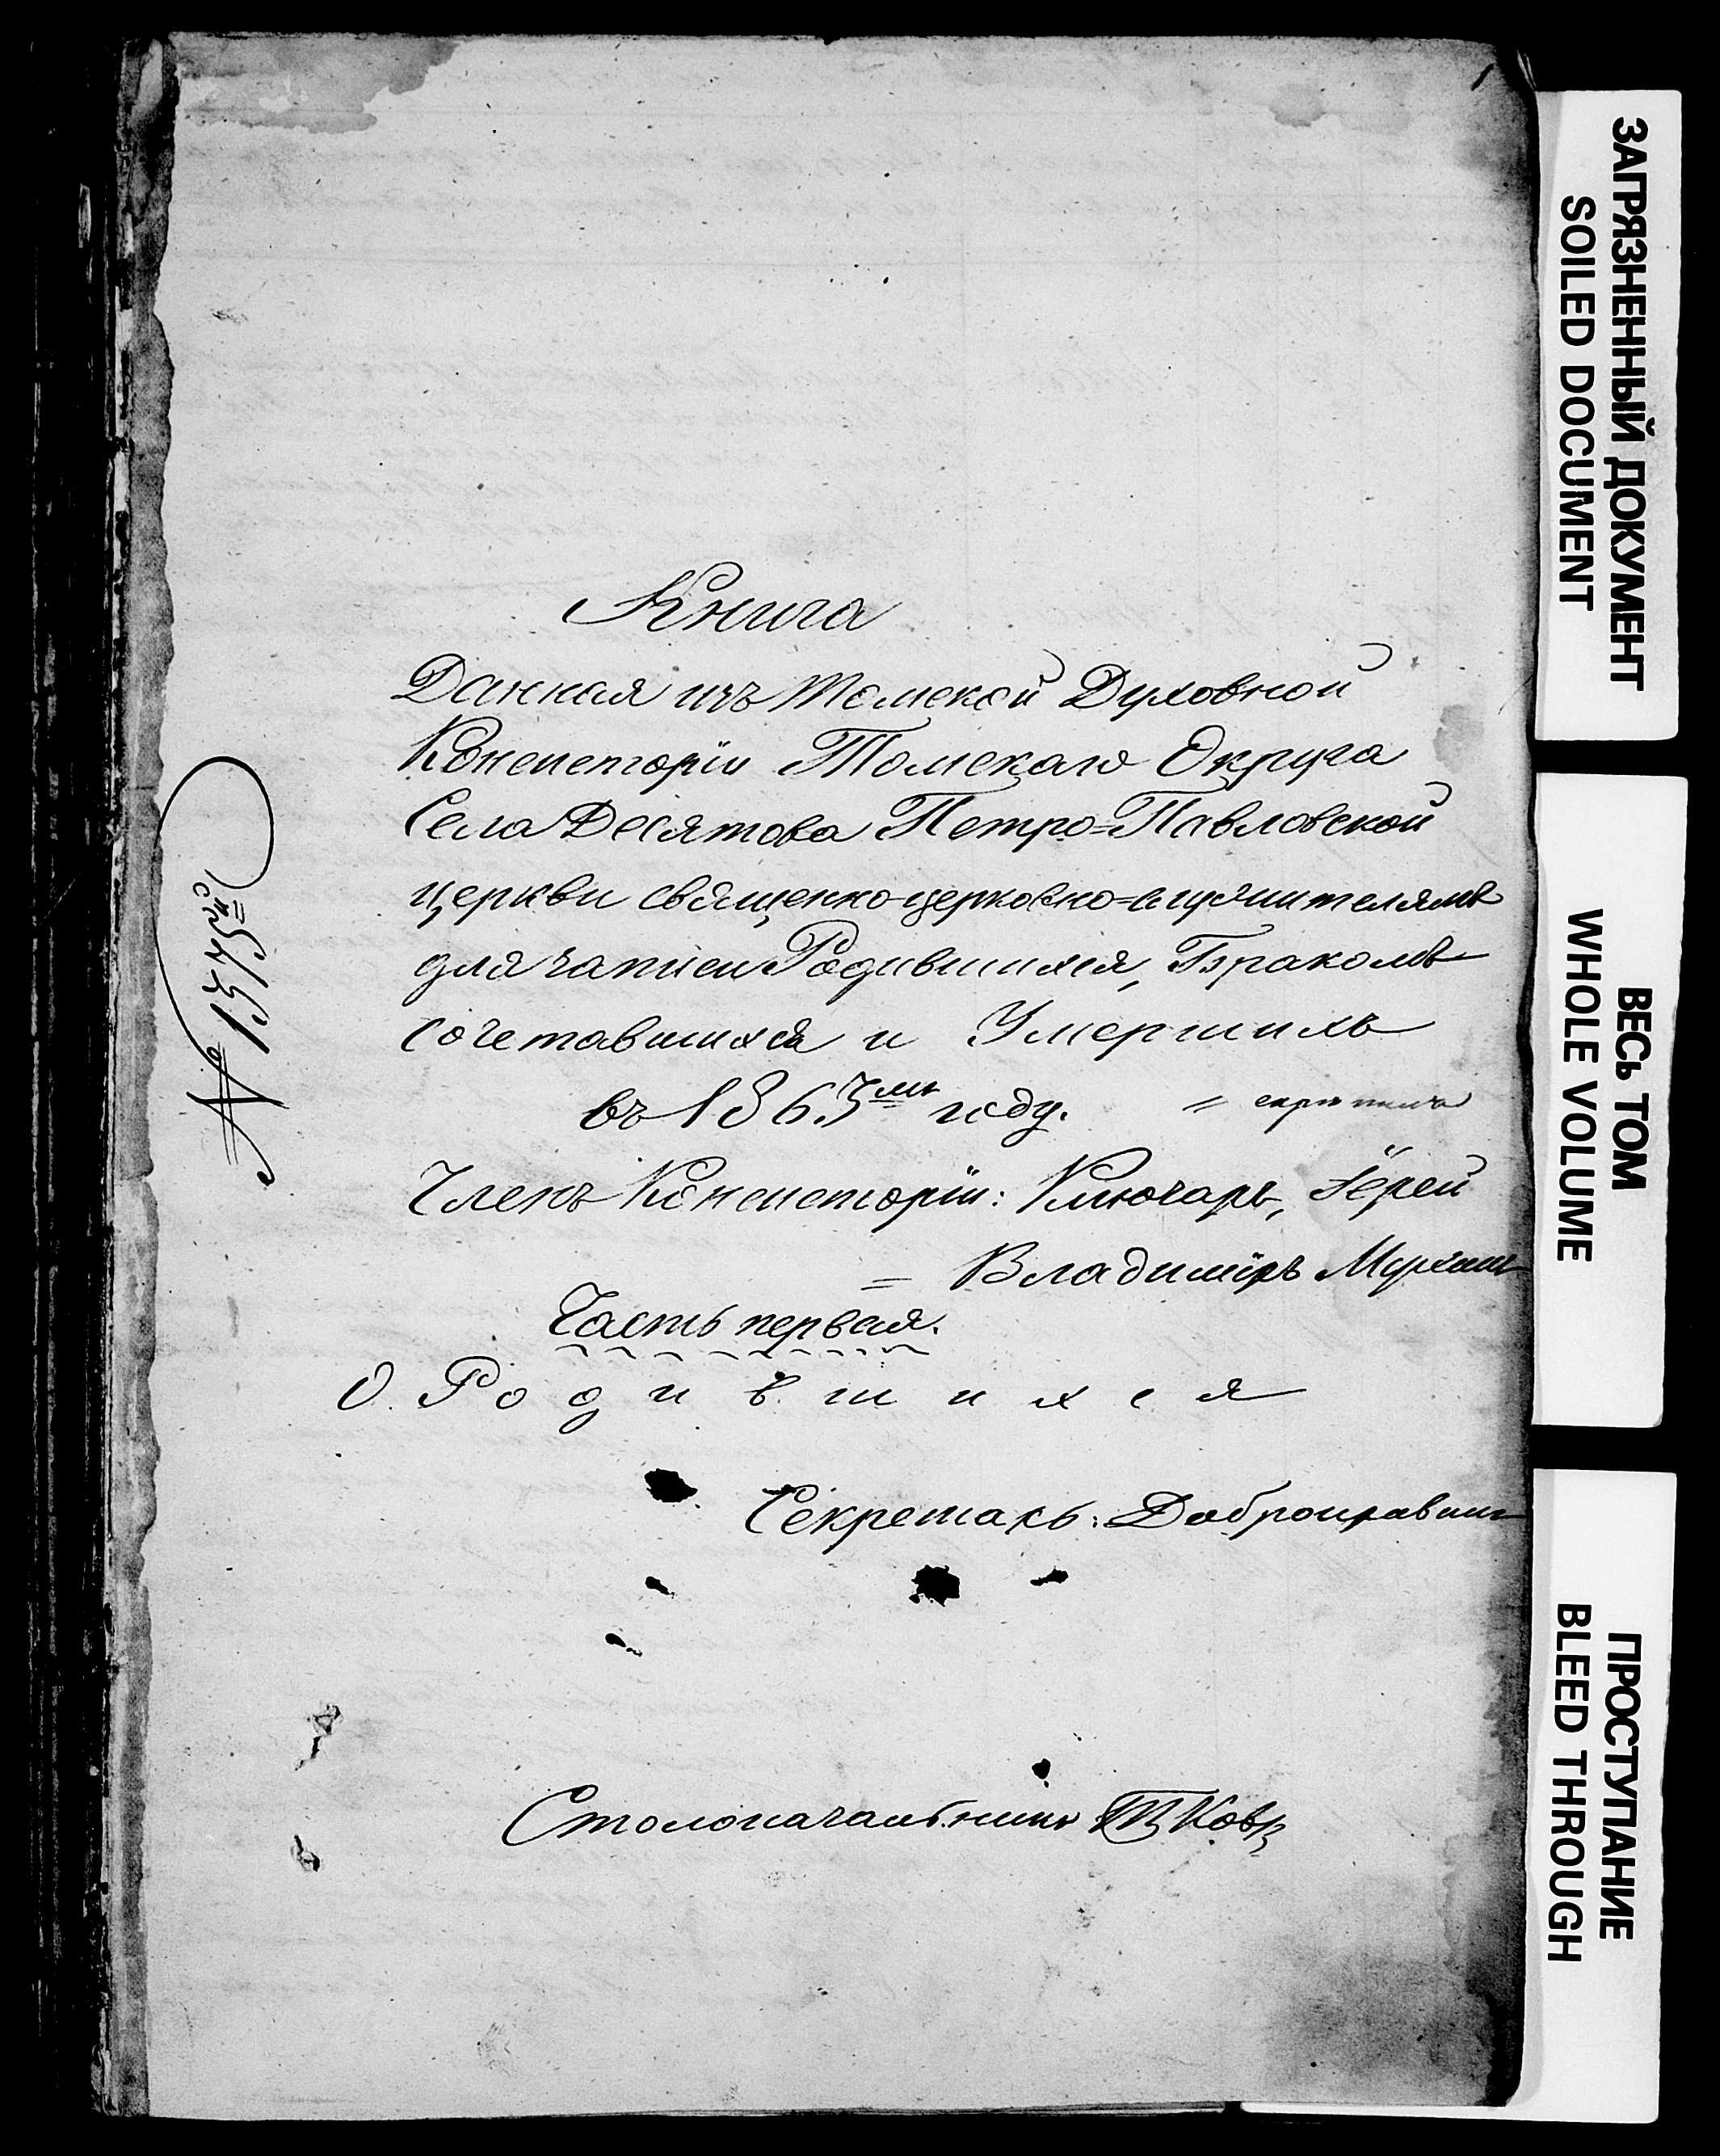 1
Книга
Данная изъ Томской Духовной
Консисторіи Томскаго Округа
Села Десятова Петро=Павловской
церкви священно-церковно=служителямъ
для записи Родившихся, Бракомъ
сочетавшихся и Умершихъ
въ 1863мъ году. =
Членъ Консисторіи: Ключарь, Іерей
= Владиміръ
Часть первая.
О. Родившихся
Секретарь:
Столоначальникъ
№
ЗАГРЯЗНЕННЫЙ ДОКУМЕНТ
SOILED DOCUMENT
ВЕСЬ ТОМ
WHOLE VOLUME
ПРОСТУПАНИЕ
BLEED THROUGH